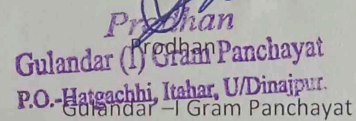 Pradhan
Prodhan
Gulandar (I) Gram Panchayat
P.O.-Hatgachhi, Itahar, U/Dinajpur.
Gulandar –I Gram Panchayat